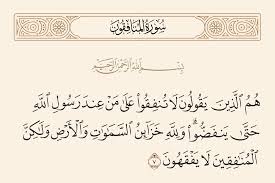 سُورَةُ المُنَافِقُونَ
بِسْمِ اللَّهِ الرَّحْمَٰنِ الرَّحِيمِ
هُمُ ٱلَّذِينَ يَقُولُونَ لَا تُنفِقُوا۟ عَلَىٰ مَنْ عِندَ رَسُولِ ٱللَّهِ
حَتَّىٰ يَنفَضُّوا۟ ۗ وَلِلَّهِ خَزَآئِنُ ٱلسَّمَٰوَٰتِ وَٱلْأَرْضِ وَلَٰكِنَّ
ٱلْمُنَٰفِقِينَ لَا يَفْقَهُونَ ٧